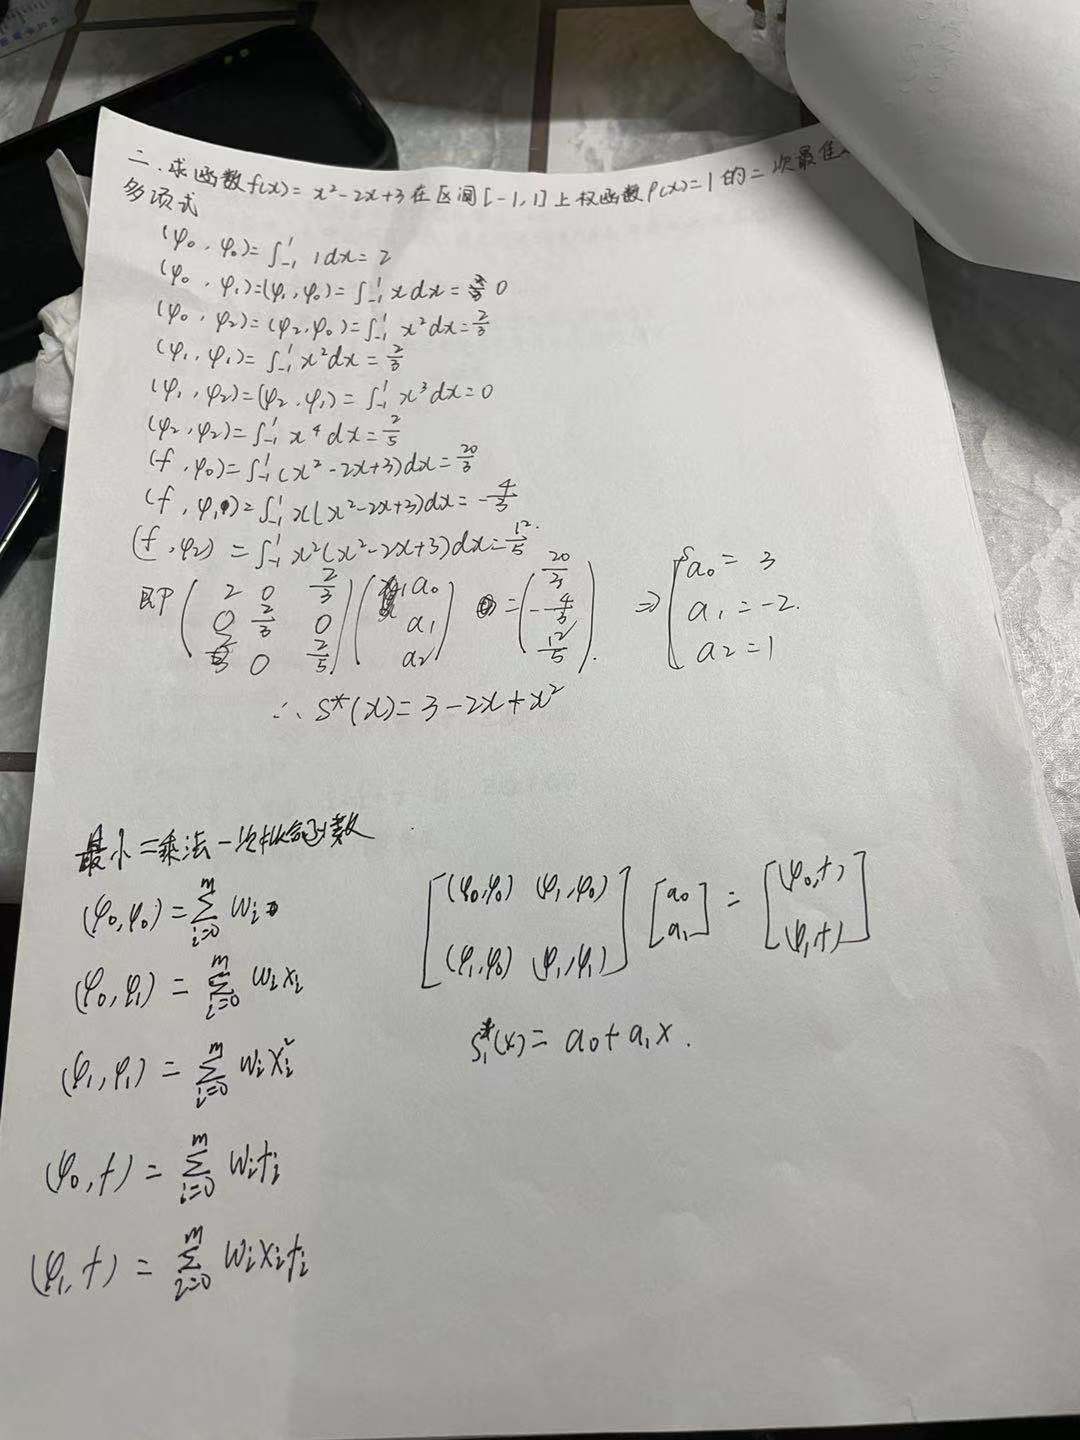 二.求函数f(x)=x²-2x+3在区间[-1,1]上权函数ρ(x)=1的二次最佳
多项式
(φ₀,φ₀)=∫₋₁¹ 1dx=2
(φ₀,φ₁)=(φ₁,φ₀)=∫₋₁¹ xdx=0
(φ₀,φ₂)=(φ₂,φ₀)=∫₋₁¹ x²dx=2/3
(φ₁,φ₁)=∫₋₁¹ x²dx=2/3
(φ₁,φ₂)=(φ₂,φ₁)=∫₋₁¹ x³dx=0
(φ₂,φ₂)=∫₋₁¹ x⁴dx=2/5
(f,φ₀)=∫₋₁¹(x²-2x+3)dx=20/3
(f,φ₁)=∫₋₁¹ x(x²-2x+3)dx=-4/3
(f,φ₂)=∫₋₁¹ x²(x²-2x+3)dx=12/5
即 (2 0 2/3; 0 2/3 0; 2/3 0 2/5)(a₀; a₁; a₂)=(20/3; -4/3; 12/5). ⇒ {a₀=3; a₁=-2.; a₂=1
∴ S*(x)=3-2x+x²
最小二乘法一次拟合函数
(φ₀,φ₀)=∑ᵢ₌₀ᵐ wᵢ
(φ₀,φ₁)=∑ᵢ₌₀ᵐ wᵢxᵢ
(φ₁,φ₁)=∑ᵢ₌₀ᵐ wᵢxᵢ²
(φ₀,f)=∑ᵢ₌₀ᵐ wᵢfᵢ
(φ₁,f)=∑ᵢ₌₀ᵐ wᵢxᵢfᵢ
[(φ₀,φ₀) (φ₁,φ₀); (φ₁,φ₀) (φ₁,φ₁)][a₀; a₁]=[(φ₀,f); (φ₁,f)]
S₁*(x)=a₀+a₁x.